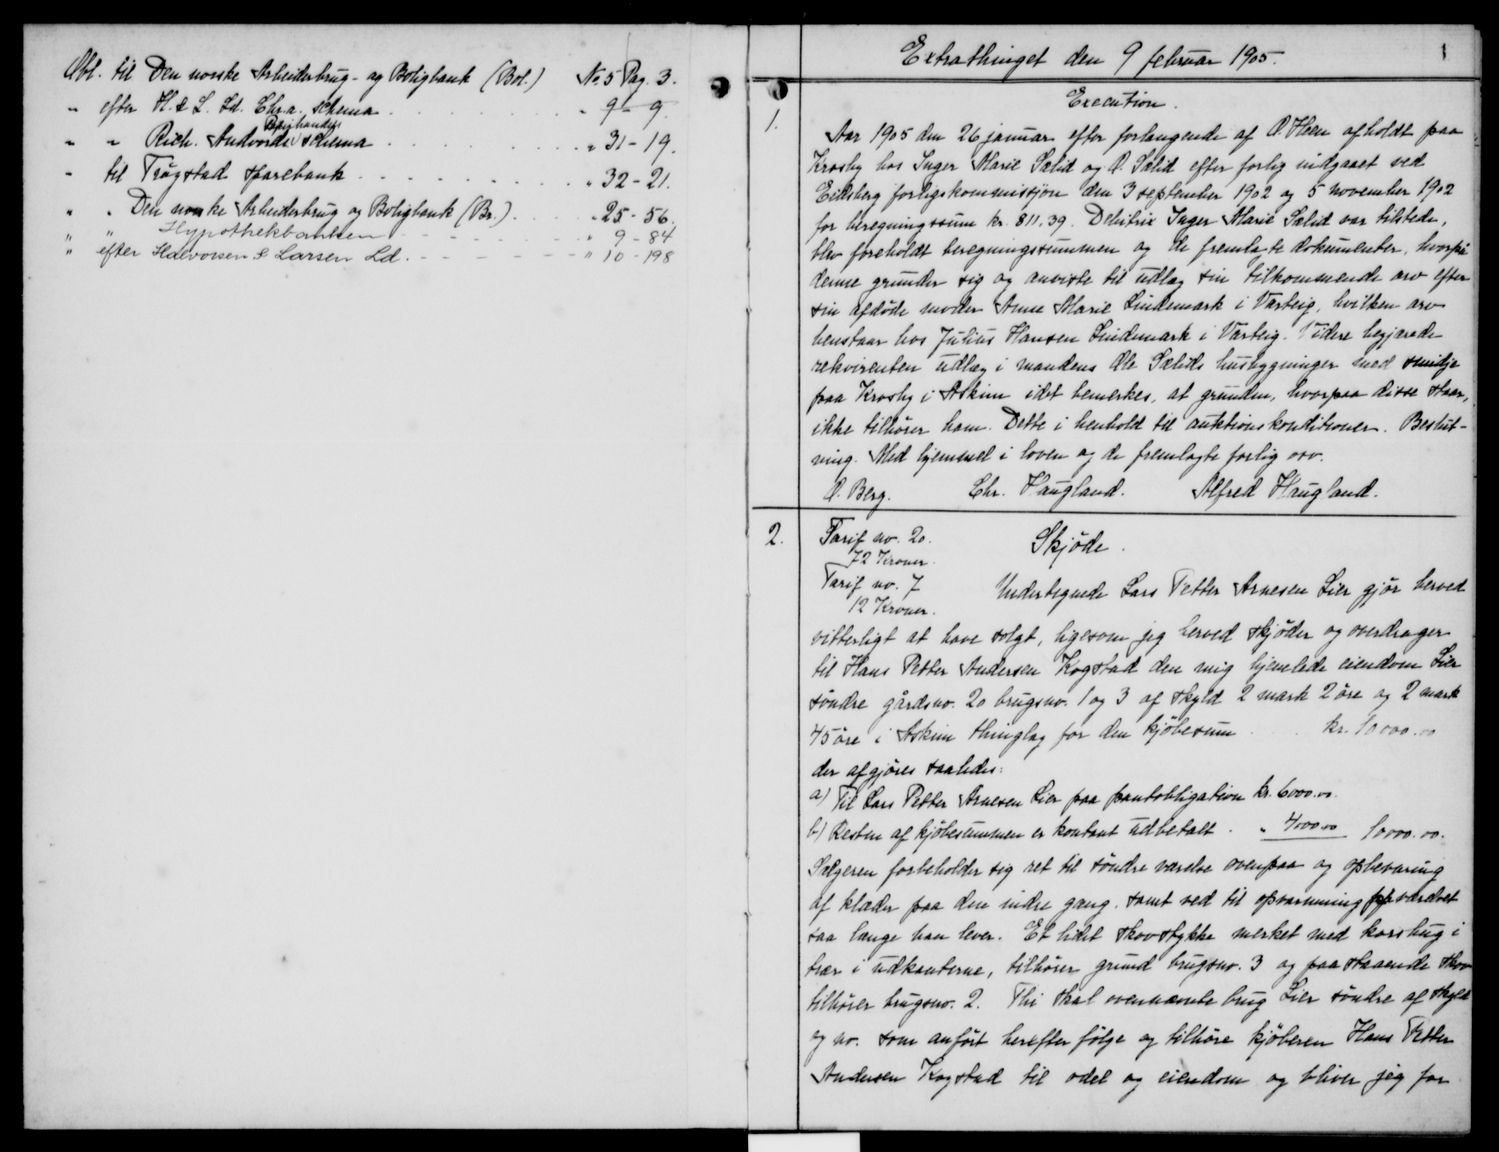 Obl. til Den norske Arbeiderbrug- og Boligbank (Bol.) No. 5 Pag. 3.
" efter H. & L. Ld. Chr.a. schema . . . . . . " 9 - 9.
" " Rich. Andvords Boghandel schema . . . . . . " 31 - 19.
" til Trøgstad sparebank . . . . . . " 32 - 21.
" " Den norske Arbeiderbrug og Boligbank (Br.) . . . . " 25 - 56.
" " Hypothekbanken - - - - - - " 9 - 84
" efter Halvorsen & Larsen Ld. - - - - - - " 10 - 198
1
Extrathinget den 9 februar 1905.
Execution.
1. Aar 1905 den 26 januar efter forlangende af O. Heen afholdt paa
Krosby hos Inger Marie Sælid og O. Sælid efter forlig indgaaet ved
Eidsberg forligskommissjon den 3 september 1902 og 5 november 1902
for beregningssum kr. 811.39. Debitrix Inger Marie Sælid var tilstede,
blev foreholdt beregningssummen og de fremlagte dokumenter, hvorpå
denne grunder sig og anviste til udlæg sin tilkommende arv efter
sin afdøde moder Anne Marie Lindemark i Varteig, hvilken arv
henstaar hos Julius Hansen Lindemark i Varteig. Videre begjærede
rekvirenten udlæg i mandens Ole Sælids husbygninger med smidje
paa Krosby i Askim idet bemerkes, at grunden, hvorpaa disse staar,
ikke tilhører ham. Dette i henhold til auktionskonditioner. Beslut-
ning. Med hjemmel i loven og de fremlagte forlig osv.
O. Berg. Chr. Haugland. Alfred Haugland.
2. Tarif no. 20. Skjøde.
72 Kroner.
Tarif no. 7 Undertegnede Lars Petter Arnesen Lier gjør herved
12 Kroner.
vitterligt at have solgt, ligesom jeg herved skjøder og overdrager
til Hans Petter Andersen Kogstad den mig hjemlede eiendom Lier
søndre gårdsno. 20 brugsno. 1 og 3 af skyld 2 mark 2 øre og 2 mark
45 øre i Askim thinglag for den kjøbesum . . kr. 10000.00
der afgjøres saaledes:
a) Til Lars Petter Arnesen Lier paa pantobligation kr. 6000.00.
b) Resten af kjøbesummen er kontant udbetalt . " 4000.00 10000.00.
Sælgeren forbeholder sig ret til søndre værelse ovenpaa og opbevaring
af klæder paa den indre gang, samt ved til opvarmning værelset
saa længe han lever. Et lidet skovstykke merket med korshug i
trær i udkanterne, tilhører grund brugsno. 3 og paastaaende skov
tilhører brugsno. 2. Thi skal ovennævnte brug Lier søndre af skyld
og no. som anført herefter følge og tilhøre kjøberen Hans Petter
Andersen Kogstad til odel og eiendom og bliver jeg for